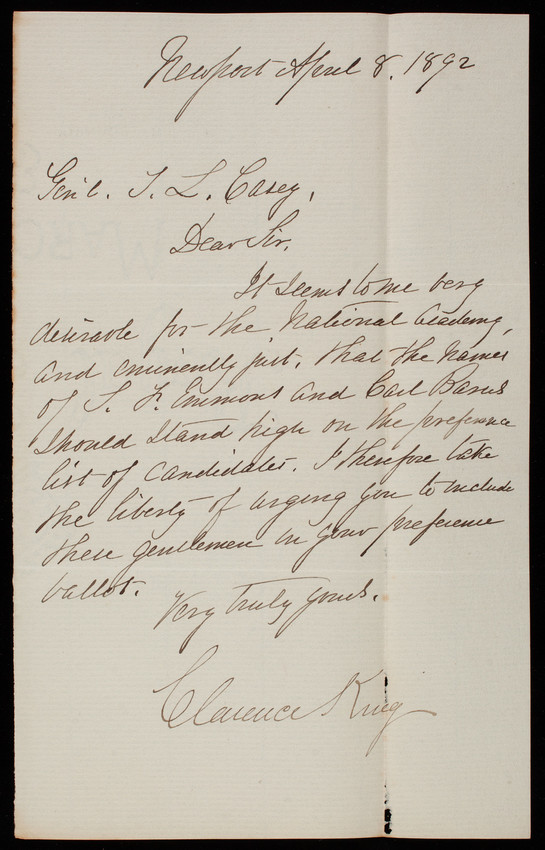 Newport April 8, 1892
Gen'l. T. L. Casey,
Dear Sir,
It seems to me very
desirable for the National Academy,
and eminently just, that the names
of S. F. Emmons and Carl Barus
should stand high on the preference
list of candidates. I therefore take
the liberty of urging you to include
these gentlemen in your preference
ballot.
Very truly yours,
Clarence King